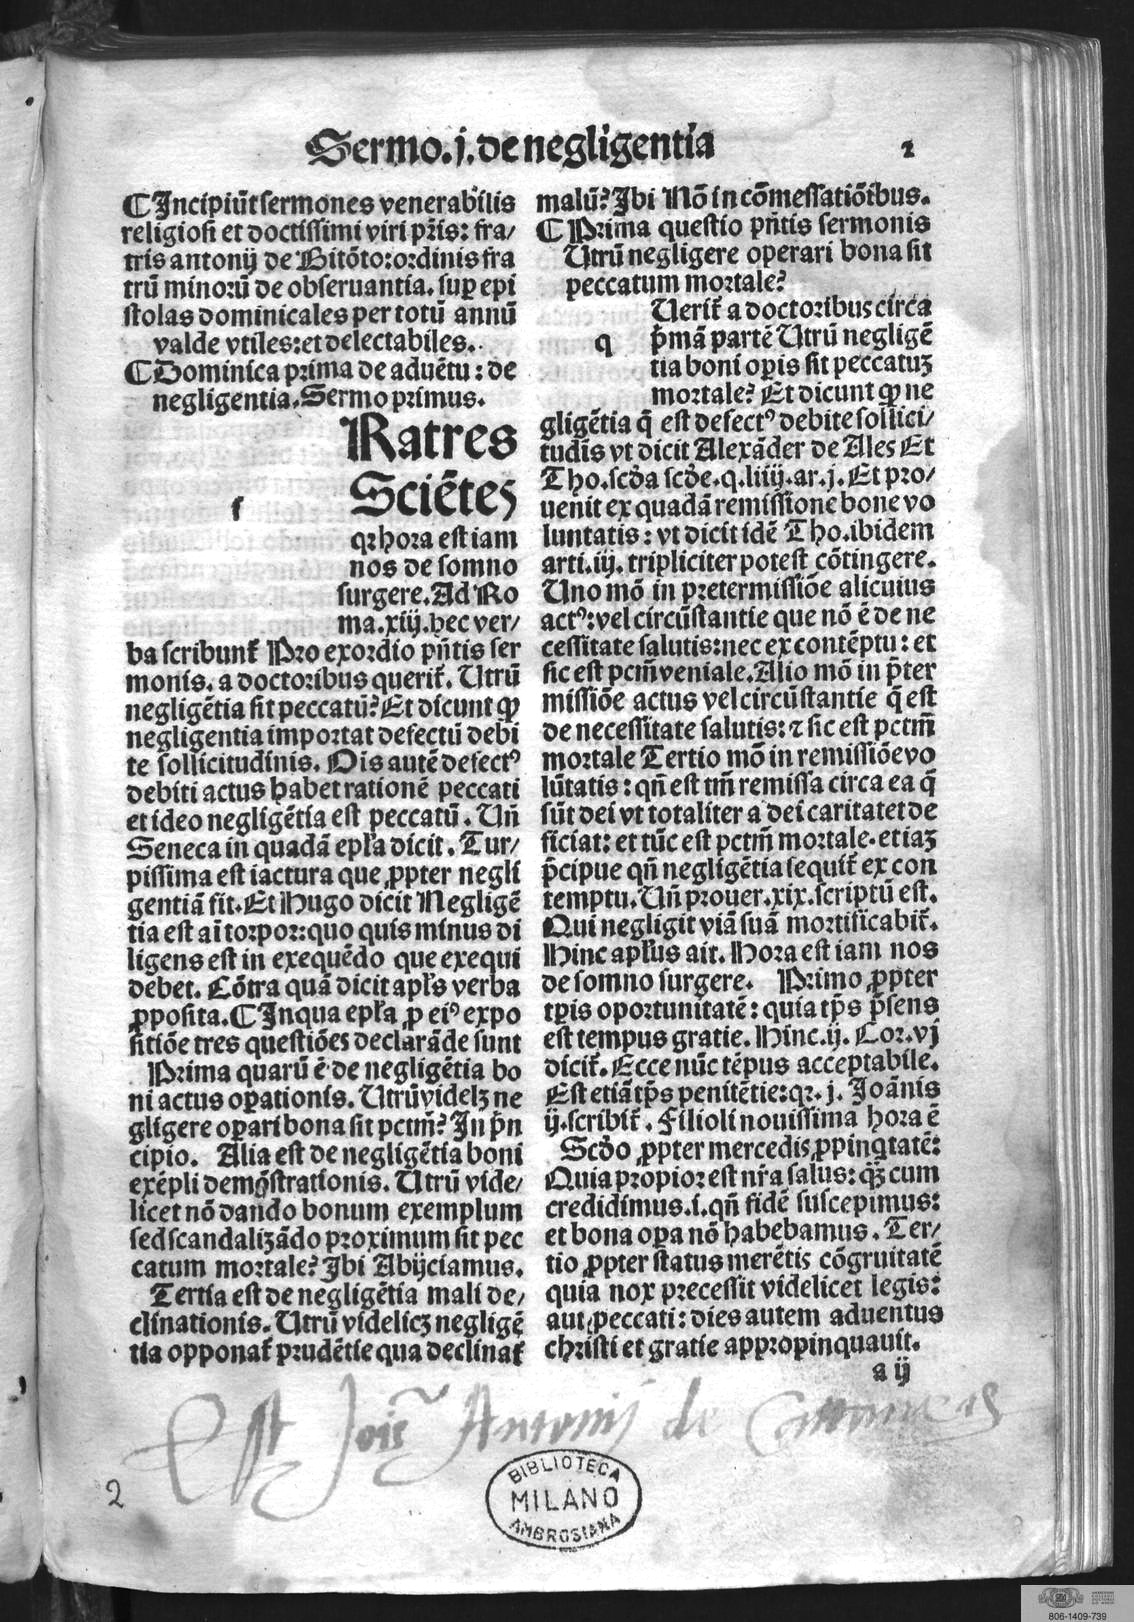 Sermo.j.de negligentia
2
¶Incipiũt sermones venerabilis
religiosi et doctissimi viri pr̃is: fra/
tris antonij de Bitõto: ordinis fra
trũ minorũ de obseruantia. sup epi
stolas dominicales per totũ annũ
valde vtiles: et delectabiles.
¶Dominica prima de aduẽtu: de
negligentia. Sermo primus.
f
Ratres
Sciẽtes
qꝛ hora est iam
nos de somno
surgere. Ad Ro
ma.xiij. hec ver/
ba scribunt̃ Pro exordio pñtis ser
monis. a doctoribus querit̃. Utrũ
negligẽtia sit peccatũ? Et dicunt ꝙ
negligentia importat defectũ debi
te sollicitudinis. Ois autẽ defectꝰ
debiti actus habet rationẽ peccati
et ideo negligẽtia est peccatũ. Uñ
Seneca in quadã epĺa dicit. Tur/
pissima est iactura que ꝓpter negli
gentiã fit. Et Hugo dicit Negligẽ
tia est ai̅ torpor: quo quis minus di
ligens est in exequẽdo que exequi
debet. Cõtra quã dicit apĺs verba
ꝓposita. ¶In qua epĺa ꝓ eiꝰ expo
sitiõe tres questiões declarãde sunt
Prima quarũ ẽ de negligẽtia bo
ni actus oꝑationis. Utrũ videlꝫ ne
gligere oꝑari bona sit pctm̃? In pñ
cipio. Alia est de negligẽtia boni
exẽpli demõstrationis. Utrũ vide/
licet nõ dando bonum exemplum
sed scandalizãdo proximum sit pec
catum mortale? Ibi Abijciamus.
Tertia est de negligẽtia mali de/
clinationis. Utrũ videlicꝫ negligẽ
tia opponat̃ prudẽtie qua declinat̃
malũ? Ibi Nõ in cõmessatiõibus.
¶Prima questio pñtis sermonis
Utrũ negligere operari bona sit
peccatum mortale?
q
Uerit̃ a doctoribus circa
p̃mã partẽ Utrũ negligẽ
tia boni oꝑis sit peccatuꝫ
mortale? Et dicunt ꝙ ne
gligẽtia q̃ est defectꝰ debite sollici/
tudĩs vt dicit Alexãder de Ales Et
Tho. scd̃a scd̃e. q.liiij. ar.j. Et pro/
uenit ex quadã remissione bone vo
luntatis: vt dicit idẽ Tho. ibidem
arti.iij. tripliciter potest cõtingere.
Uno mõ in pretermissiõe alicuius
actꝰ: vel circũstantie que nõ ẽ de ne
cessitate salutis: nec ex contẽptu: et
sic est pcm̃ veniale. Alio mõ in p̃ter
missiõe actus vel circũstantie q̃ est
de necessitate salutis: ⁊ sic est pctm̃
mortale Tertio mõ in remissiõe vo
lũtatis: qñ est tm̃ remissa circa ea q̃
sũt dei vt totaliter a dei caritatet de
ficiat: et tũc est pctm̃ mortale. et iaꝫ
p̃cipue qñ negligẽtia sequit̃ ex con
temptu. Uñ prouer.xix. scriptũ est.
Qui negligit viã suã mortificabit̃.
Hinc apĺus ait. Hora est iam nos
de somno surgere. Primo ꝓpter
tꝑis oportunitatẽ: quia tp̃s p̃sens
est tempus gratie. Hinc.ij. Cor.vj
dicit̃. Ecce nũc tẽpus acceptabile.
Est etiã tp̃s penitẽtie: qꝛ.j. Joãnis
ij. scribit̃. Filioli nouissima hora ẽ
Scd̃o ꝓpter mercedis ꝓpinq̃tatẽ:
Quia propior est nr̃a salus: q̃ꝫ cum
credidimus.i. qñ fidẽ suscepimus:
et bona oꝑa nõ habebamus. Ter/
tio ꝓpter status merẽtis cõgruitatẽ
quia nox precessit videlicet legis:
aut peccati: dies autem aduentus
christi et gratie appropinquauit.
a ij
Est Jois̃ Antonij de
2
BIBLIOTECA
MILANO
AMBROSIANA
806-1409-739